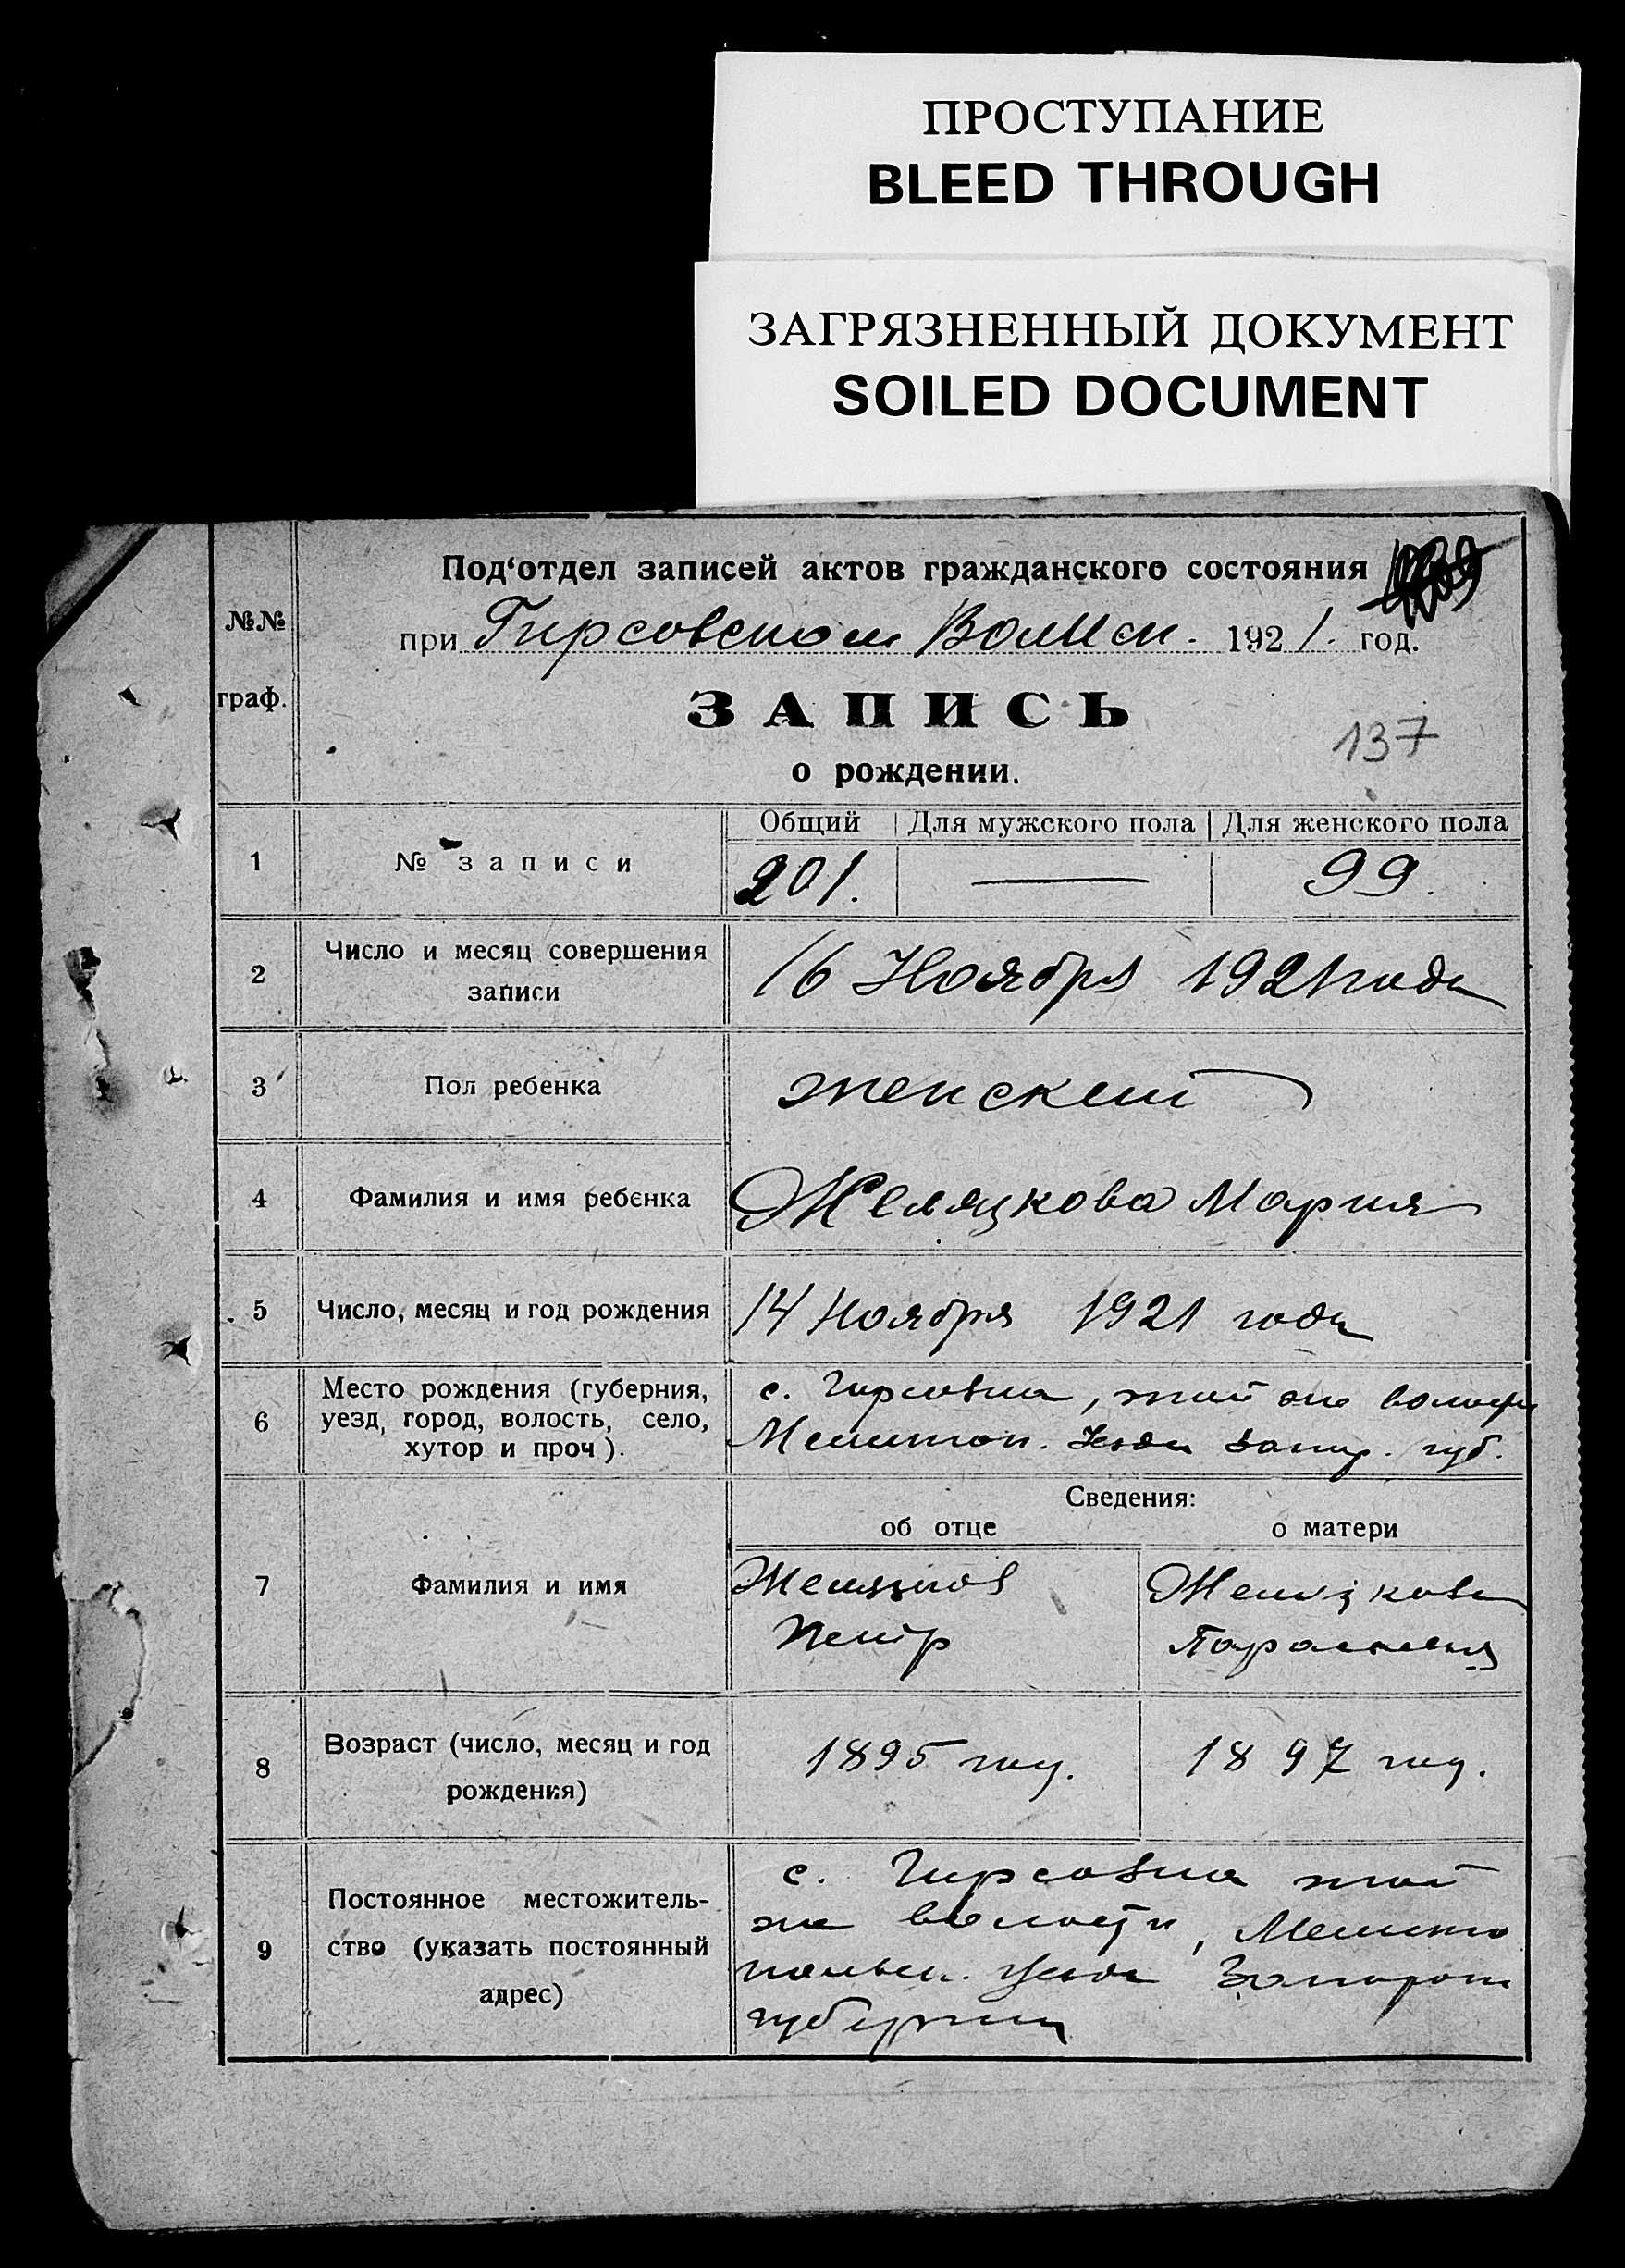 ПРОСТУПАНИЕ
BLEED THROUGH
ЗАГРЯЗНЕННЫЙ ДОКУМЕНТ
SOILED DOCUMENT
Под‘отдел записей актов гражданского состояния
№№ граф.
при Гирсовском 1921. год.
ЗАПИСЬ
137
о рождении.
Общий Для мужского пола Для женского пола
1 № записи 201. — 99.
2 Число и месяц совершения записи 16 Ноября 1921 года
3 Пол ребенка женский
4 Фамилия и имя ребенка Желязкова Мария
5 Число, месяц и год рождения 14 Ноября 1921 года
6 Место рождения (губерния, уезд, город, волость, село, хутор и проч). с. Гирсовка, той же волости
Мелитоп. Уезда Запор. губ.
Сведения:
об отце о матери
7 Фамилия и имя Желязков Желязкова
Петр Параскевия
8 Возраст (число, месяц и год рождения) 1895 году. 1897 году.
9 Постоянное местожительство (указать постоянный адрес) с. Гирсовка той
же волости, Мелито
польск. уезда Запорож
губернии